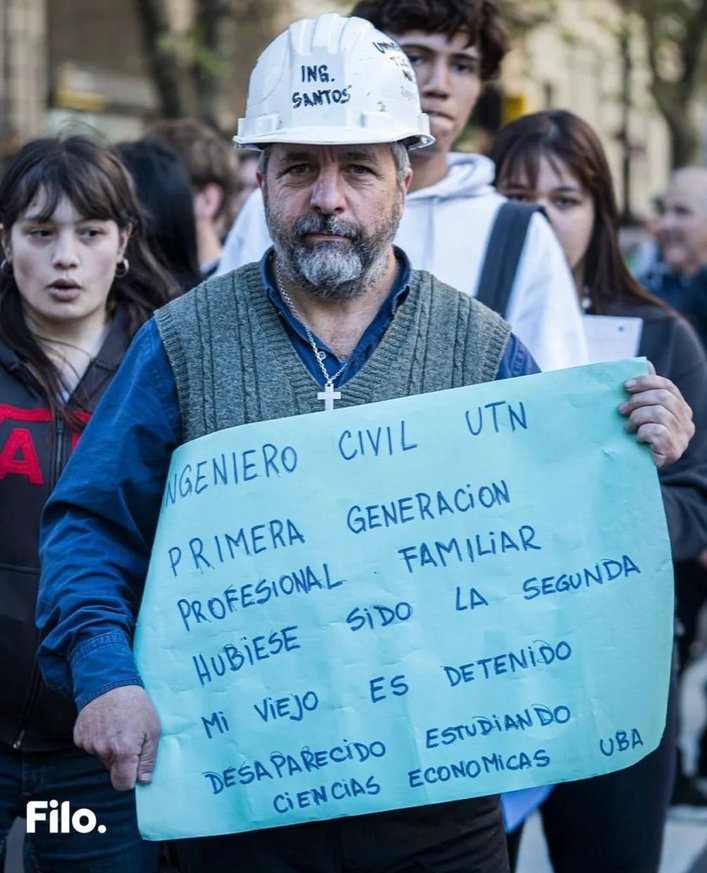 ING.
SANTOS
A
NGENIERO CIVIL UTN
PRIMERA GENERACION
PROFESIONAL FAMILIAR
HUBIESE SIDO LA SEGUNDA
MI VIEJO ES DETENIDO
DESAPARECIDO ESTUDIANDO
CIENCIAS ECONOMICAS UBA
Filo.